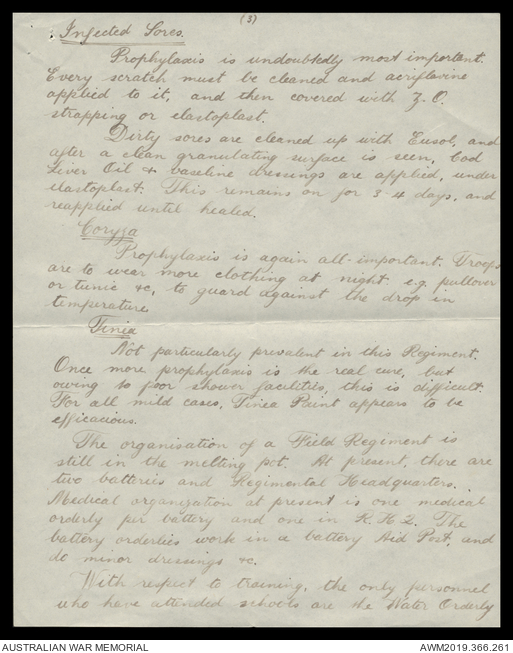 (3)
Infected Sores.
Prophylaxis is undoubtedly most important.
Every scratch must be cleaned and acriflavine
applied to it, and then covered with Z.O.
strapping or elastoplast.
Dirty sores are cleaned up with Eusol, and
after a clean granulating surface is seen, Cod
Liver Oil & vaseline dressings are applied, under
elastoplast. This remains on for 3-4 days, and
reapplied until healed.
Coryza
Prophylaxis is again all-important. Troops
are to wear more clothing at night. e.g. pullover
or tunic &c, to guard against the drop in
temperature
Tinea
Not particularly prevalent in this Regiment.
Once more prophylaxis is the real cure, but
owing to poor shower facilities, this is difficult.
For all mild cases, Tinea Paint appears to be
efficacious.
The organisation of a Field Regiment is
still in the melting pot. At present, there are
two batteries and Regimental Headquarters.
Medical organization at present is one medical
orderly per battery and one in R.H.Q. The
battery orderlies work in a battery Aid Post, and
do minor dressings &c.
With respect to training, the only personnel
who have attended schools are the Water Orderly
AUSTRALIAN WAR MEMORIAL
AWM2019.366.261